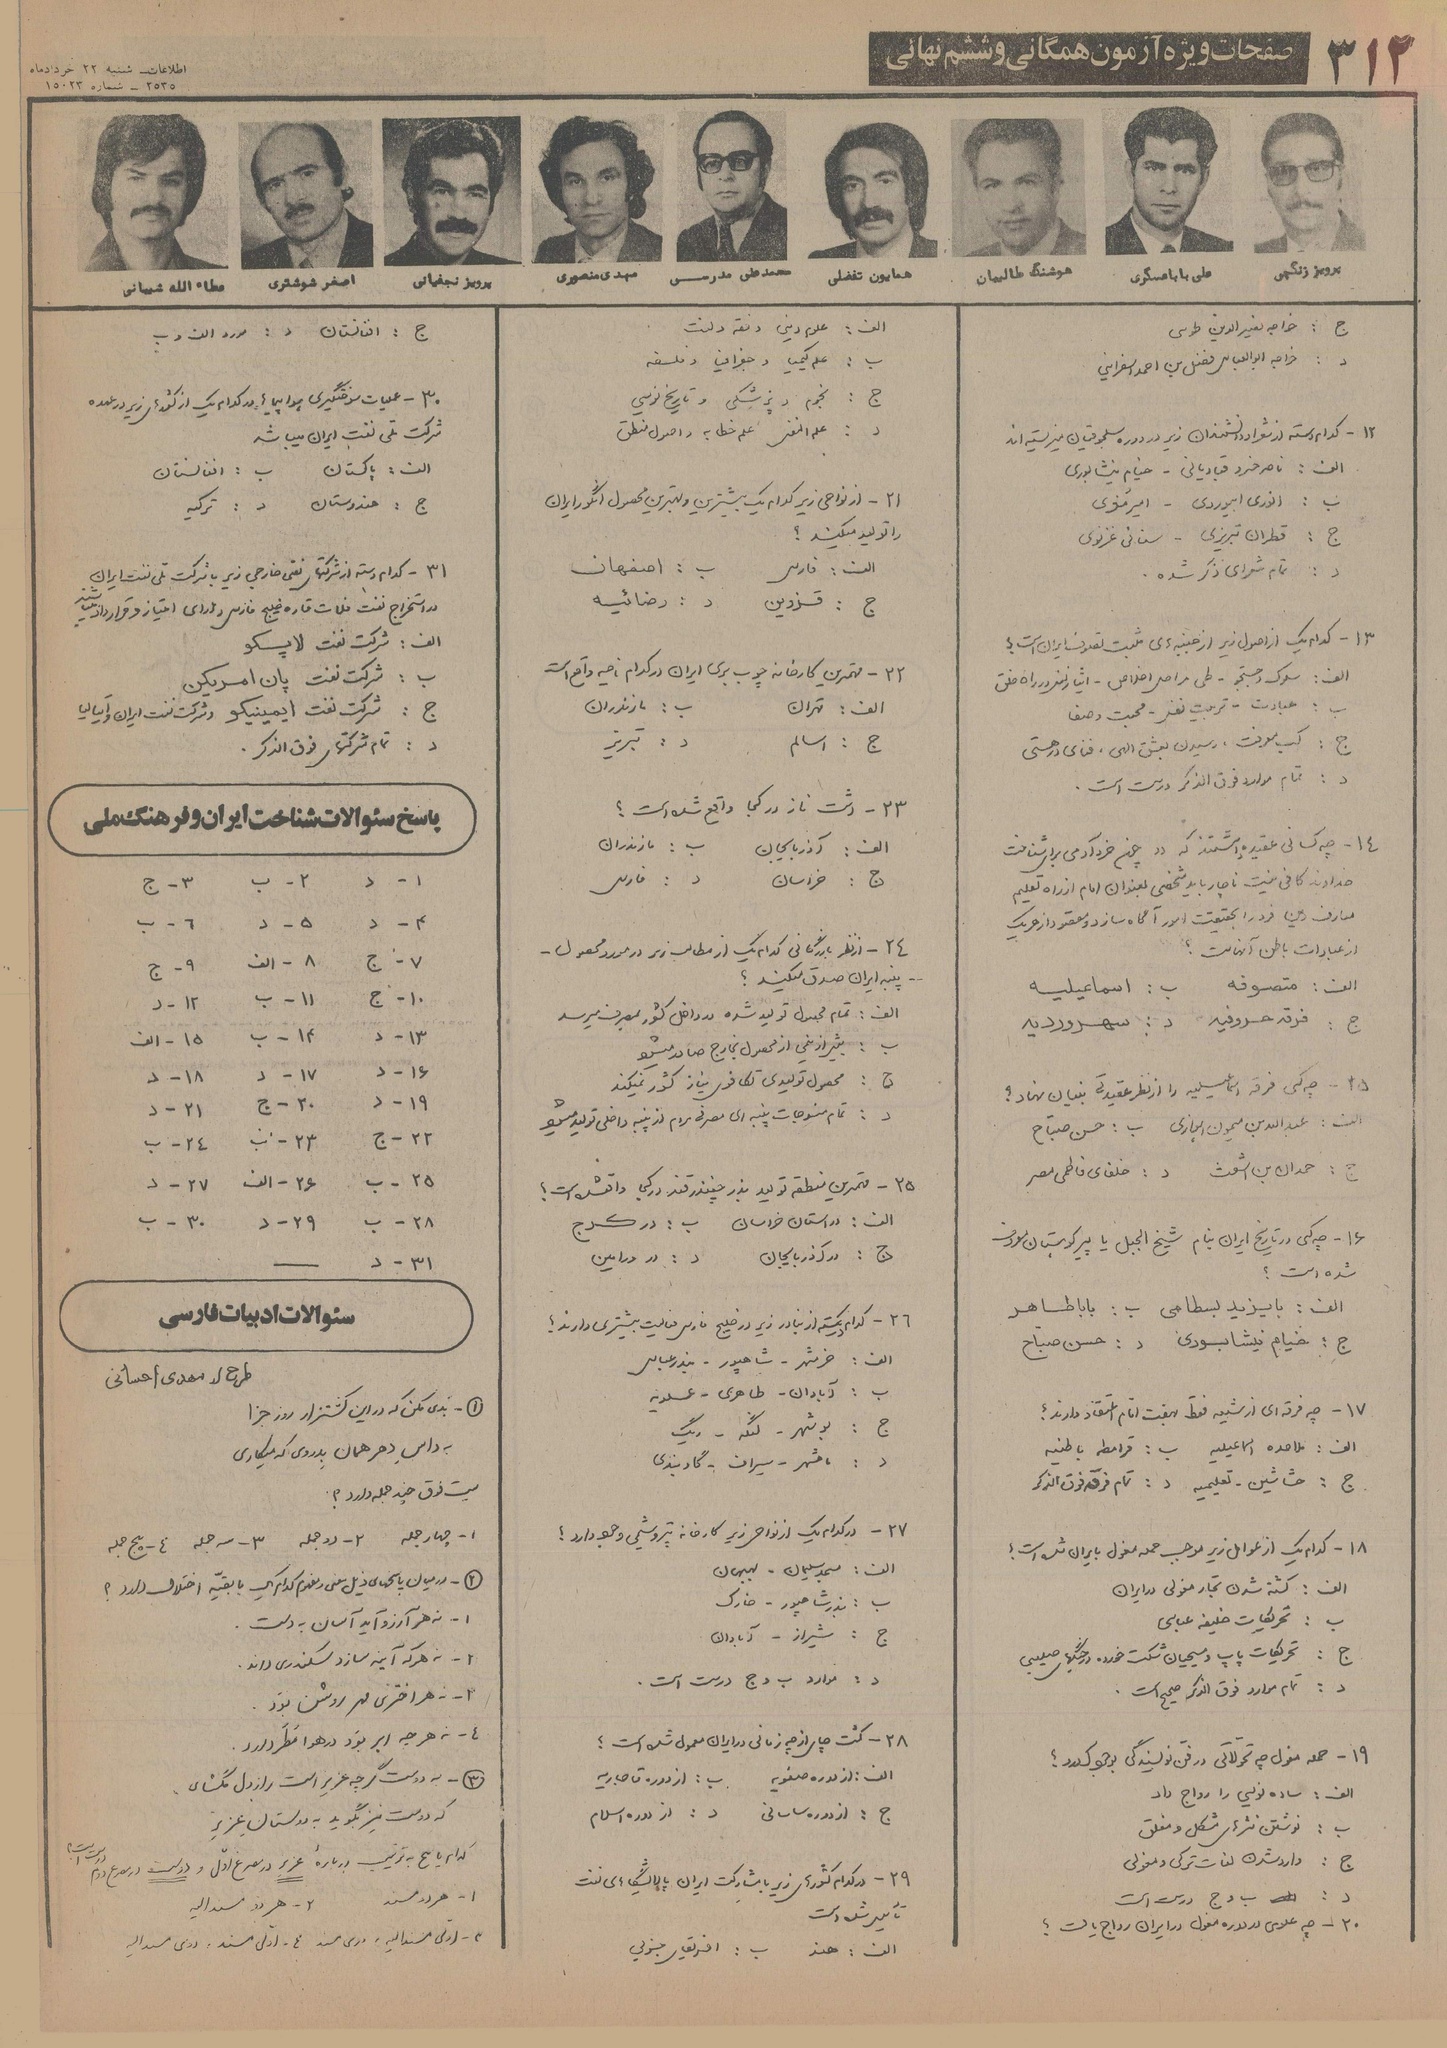 ۳۱۲
صفحات ویژه آزمون همگانی و ششم نهائی
اطلاعات ـ شنبه ۲۲ خردادماه
۲۵۳۵ ـ شماره ۱۵۰۲۳
پرویز زنگچی
علی باباعسگری
هوشنگ طالبیان
همایون تفضلی
محمدعلی مدرسی
مهدی منصوری
پرویز نجفیانی
اصغر شوشتری
عطاء الله شیبانی
ج : خواجه نصیرالدین طوسی
د : خواجه ابوالعباس فضل بن احمد اسفراینی
۱۲ - کدام دسته از شعرا و دانشمندان زیر در دوره سلجوقیان میزیسته اند
الف : ناصر خسرو قبادیانی - خیام نیشابوری
ب : انوری ابیوردی - امیر معزی
ج : قطران تبریزی - سنائی غزنوی
د : تمام شعرای ذکر شده .
۱۳ - کدام یک از اصول زیر از جنبه های مثبت تصوف ایران است ؟
الف : سلوک و جستجو - طی مراحل اخلاص - ایثار نفس در راه خلق
ب : عبادت - تربیت نفس - محبت و صفا
ج : کسب معرفت ، رسیدن بعشق الهی ، فنای در هستی
د : تمام موارد فوق الذکر درست است .
۱۴ - چه کسانی عقیده داشتند که چون خرد آدمی برای شناخت
خداوند کافی نیست ناچار باید شخصی بعنوان امام از راه تعلیم
معارف دین فرد را بحقیقت امور آگاه سازد و مقصود از هریک
از عبادات باطن آنهاست ؟
الف : متصوفه ب : اسماعیلیه
ج : فرقه حروفیه د : سهروردیه
۱۵ - چه کسی فرقه اسماعیلیه را از نظر عقیدتی بنیان نهاد ؟
الف : عبدالله بن میمون اهوازی ب : حسن صباح
ج : حمدان بن اشعث د : خلفای فاطمی مصر
۱۶ - چه کسی در تاریخ ایران بنام شیخ الجبل یا پیر کوهستان معروف
شده است ؟
الف : بایزید بسطامی ب : باباطاهر
ج : خیام نیشابوری د : حسن صباح
۱۷ - چه فرقه ای از شیعه فقط بهفت امام اعتقاد دارند ؟
الف : ملاحده اسماعیلیه ب : قرامطه باطنیه
ج : حشاشین - تعلیمیه د : تمام فرقه فوق الذکر
۱۸ - کدام یک از عوامل زیر موجب حمله مغول بایران شده است ؟
الف : کشته شدن تجار مغولی در ایران
ب : تحریکات خلیفه عباسی
ج : تحریکات پاپ و مسیحیان شکست خورده در جنگهای صلیبی
د : تمام موارد فوق الذکر صحیح است .
۱۹ - حمله مغول چه تحولاتی در فن نویسندگی بوجود آورد ؟
الف : ساده نویسی را رواج داد
ب : نوشتن نثرهای مشکل و مغلق
ج : وارد شدن لغات ترکی و مغولی
د : ب و ج درست است
۲۰ - چه علومی در دوره مغول در ایران رواج یافت ؟
الف : علوم دینی و فقه و لغت
ب : علم کیمیا و جغرافیا و فلسفه
ج : نجوم و پزشکی و تاریخ نویسی
د : علم النفس علم خطابه و اصول منطق
۲۱ - از نواحی زیر کدام یک بیشترین و بهترین محصول انگور ایران
را تولید میکنند ؟
الف : فارس ب : اصفهان
ج : قزوین د : رضائیه
۲۲ - مهمترین کارخانه چوب بری ایران در کدام ناحیه واقع است
الف : تهران ب : مازندران
ج : اسالم د : تبریز
۲۳ - دشت ناز در کجا واقع شده است ؟
الف : آذربایجان ب : مازندران
ج : خراسان د : فارس
۲۴ - از نظر بازرگانی کدام یک از مطالب زیر در مورد محصول -
پنبه ایران صدق میکند ؟
الف : تمام محصول تولید شده در داخل کشور بمصرف میرسد
ب : بیش از نیمی از محصول بخارج صادر میشود
ج : محصول تولیدی تکافوی نیاز کشور نمیکند
د : تمام منسوجات پنبه ای مصرفی مردم از پنبه داخلی تولید میشود
۲۵ - مهمترین منطقه تولید بذر چغندر قند در کجا واقع شده است ؟
الف : در استان خراسان ب : در کرج
ج : در آذربایجان د : در ورامین
۲۶ - کدام یکدسته از بنادر زیر در خلیج فارس فعالیت بیشتری دارند ؟
الف : خرمشهر - شاهپور - بندرعباس
ب : آبادان - طاهری - عسلویه
ج : بوشهر - لنگه - ریگ
د : ماهشهر - سیراف - گاوبندی
۲۷ - در کدام یک از نواحی زیر کارخانه پتروشیمی وجود دارد ؟
الف : مسجدسلیمان - بهبهان
ب : بندرشاهپور - خارک
ج : شیراز - آبادان
د : موارد ب و ج درست است .
۲۸ - کشت چای از چه زمانی در ایران معمول شده است ؟
الف : از دوره صفویه ب : از دوره قاجاریه
ج : از دوره ساسانی د : از دوره اسلام
۲۹ - در کدام کشورهای زیر با مشارکت ایران پالایشگاه های نفت
تأسیس شده است
الف : هند ب : افریقای جنوبی
ج : افغانستان د : مورد الف و ب
۳۰ - عملیات سوختگیری هواپیماها در کدام یک از کشورهای زیر در عهده
شرکت ملی نفت ایران میباشد
الف : پاکستان ب : افغانستان
ج : هندوستان د : ترکیه
۳۱ - کدام دسته از شرکتهای نفتی خارجی زیر با شرکت ملی نفت ایران
در استخراج نفت فلات قاره خلیج فارس دارای امتیاز و قرارداد میباشند
الف : شرکت نفت لاپسکو
ب : شرکت نفت پان امریکن
ج : شرکت نفت ایمینیکو و شرکت نفت ایران و ایتالیا
د : تمام شرکتهای فوق الذکر .
پاسخ سئوالات شناخت ایران و فرهنگ ملی
۱ - د ۲ - ب ۳ - ج
۴ - د ۵ - د ۶ - ب
۷ - ج ۸ - الف ۹ - ج
۱۰ - ج ۱۱ - ب ۱۲ - د
۱۳ - د ۱۴ - ب ۱۵ - الف
۱۶ - د ۱۷ - د ۱۸ - د
۱۹ - د ۲۰ - ج ۲۱ - د
۲۲ - ج ۲۳ - ب ۲۴ - ب
۲۵ - ب ۲۶ - الف ۲۷ - د
۲۸ - ب ۲۹ - د ۳۰ - ب
۳۱ - د
سئوالات ادبیات فارسی
طرح از مهدی احسانی
۱ - بدی مکن که در این کشتزار روز جزا
به داس دهر همان بدروی که میکاری
بیت فوق چند جمله دارد ؟
۱ - چهار جمله ۲ - دو جمله ۳ - سه جمله ۴ - پنج جمله
۲ - در میان پاسخهای ذیل معنی و مفهوم کدام یک با بقیه اختلاف دارد ؟
۱ - نه هر آرزو آید آسان به دست .
۲ - نه هر که آینه سازد سکندری داند .
۳ - نه هر اختری مهر روشن بود .
۴ - نه هر چه ابر بود در هوا مطر دارد .
۳ - به دوست گرچه عزیز است راز دل مگشای
که دوست نیز بگوید به دوستان عزیز
کدام پاسخ به ترتیب درباره عزیز در مصرع اول و دوست در مصرع دوم درست است ؟
۱ - هر دو مسند ۲ - هر دو مسندالیه
۳ - اولی مسندالیه ، دومی مسند ۴ - اولی مسند ، دومی مسندالیه